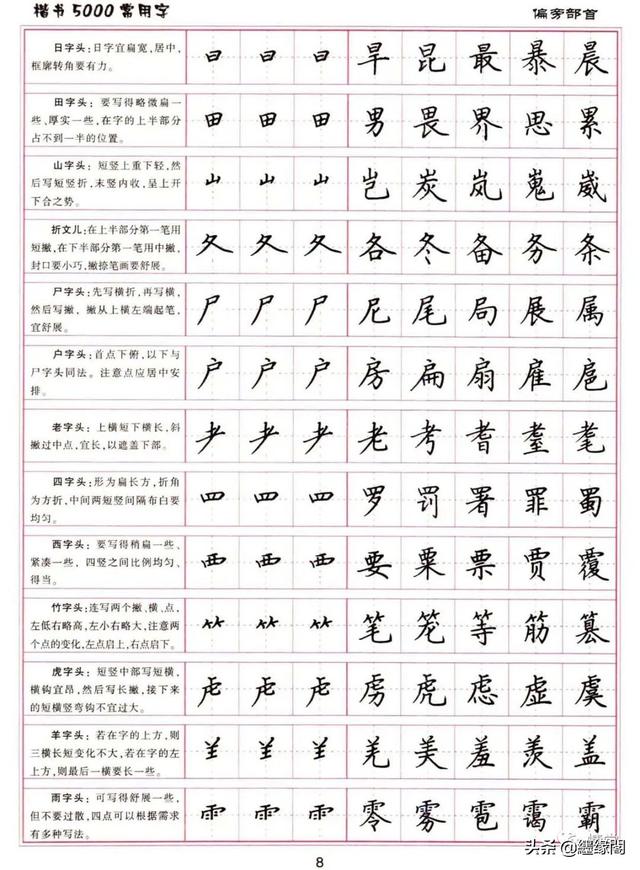 楷书5000常用字
偏旁部首
日字头：日字宜扁宽,居中,
框廓转角要有力。
日 日 日 旱 昆 最 暴 晨
田字头：要写得略微扁一
些、厚实一些,在字的上半部分
占不到一半的位置。
田 田 田 男 畏 界 思 累
山字头：短竖上重下轻,然
后写短竖折,末竖内收,呈上开
下合之势。
山 山 山 岂 炭 岚 嵬 崴
折文儿：在上半部分第一笔用
短撇,在下半部分第一笔用中撇,
封口要小巧,撇捺笔画要舒展。
夂 夂 夂 各 冬 备 务 条
尸字头：先写横折,再写横,
然后写撇，撇从上横左端起笔,
宜舒展。
尸 尸 尸 尼 尾 局 展 属
户字头：首点下俯,以下与
尸字头同法。注意点应居中安
排。
户 户 户 房 扁 扇 雇 扈
老字头：上横短下横长,斜
撇过中点,宜长,以遮盖下部。
耂 耂 耂 老 考 耆 耋 耄
四字头：形为扁长方,折角
为方折,中间两短竖间隔布白要
均匀。
罒 罒 罒 罗 罚 署 罪 蜀
西字头：要写得稍扁一些、
紧凑一些，四竖之间比例均匀、
得当。
覀 覀 覀 要 粟 票 贾 覆
竹字头：连写两个撇、横、点,
左低右略高,左小右略大,注意两
个点的变化,左点启上,右点启下。
⺮ ⺮ ⺮ 笔 笼 等 筋 篡
虎字头：短竖中部写短横,
横钩宜昂,然后写长撇,接下来
的短横竖弯钩不宜过大。
虍 虍 虍 虏 虎 虑 虚 虞
羊字头：若在字的上方,则
三横长短变化不大,若在字的左
上方,则最后一横要长一些。
⺷ ⺷ ⺷ 羌 美 羞 羡 盖
雨字头：可写得舒展一些,
但不要过散,四点可以根据需求
有多种写法。
⻗ ⻗ ⻗ 零 雾 雹 霭 霸
头条 @繾缘閣
8